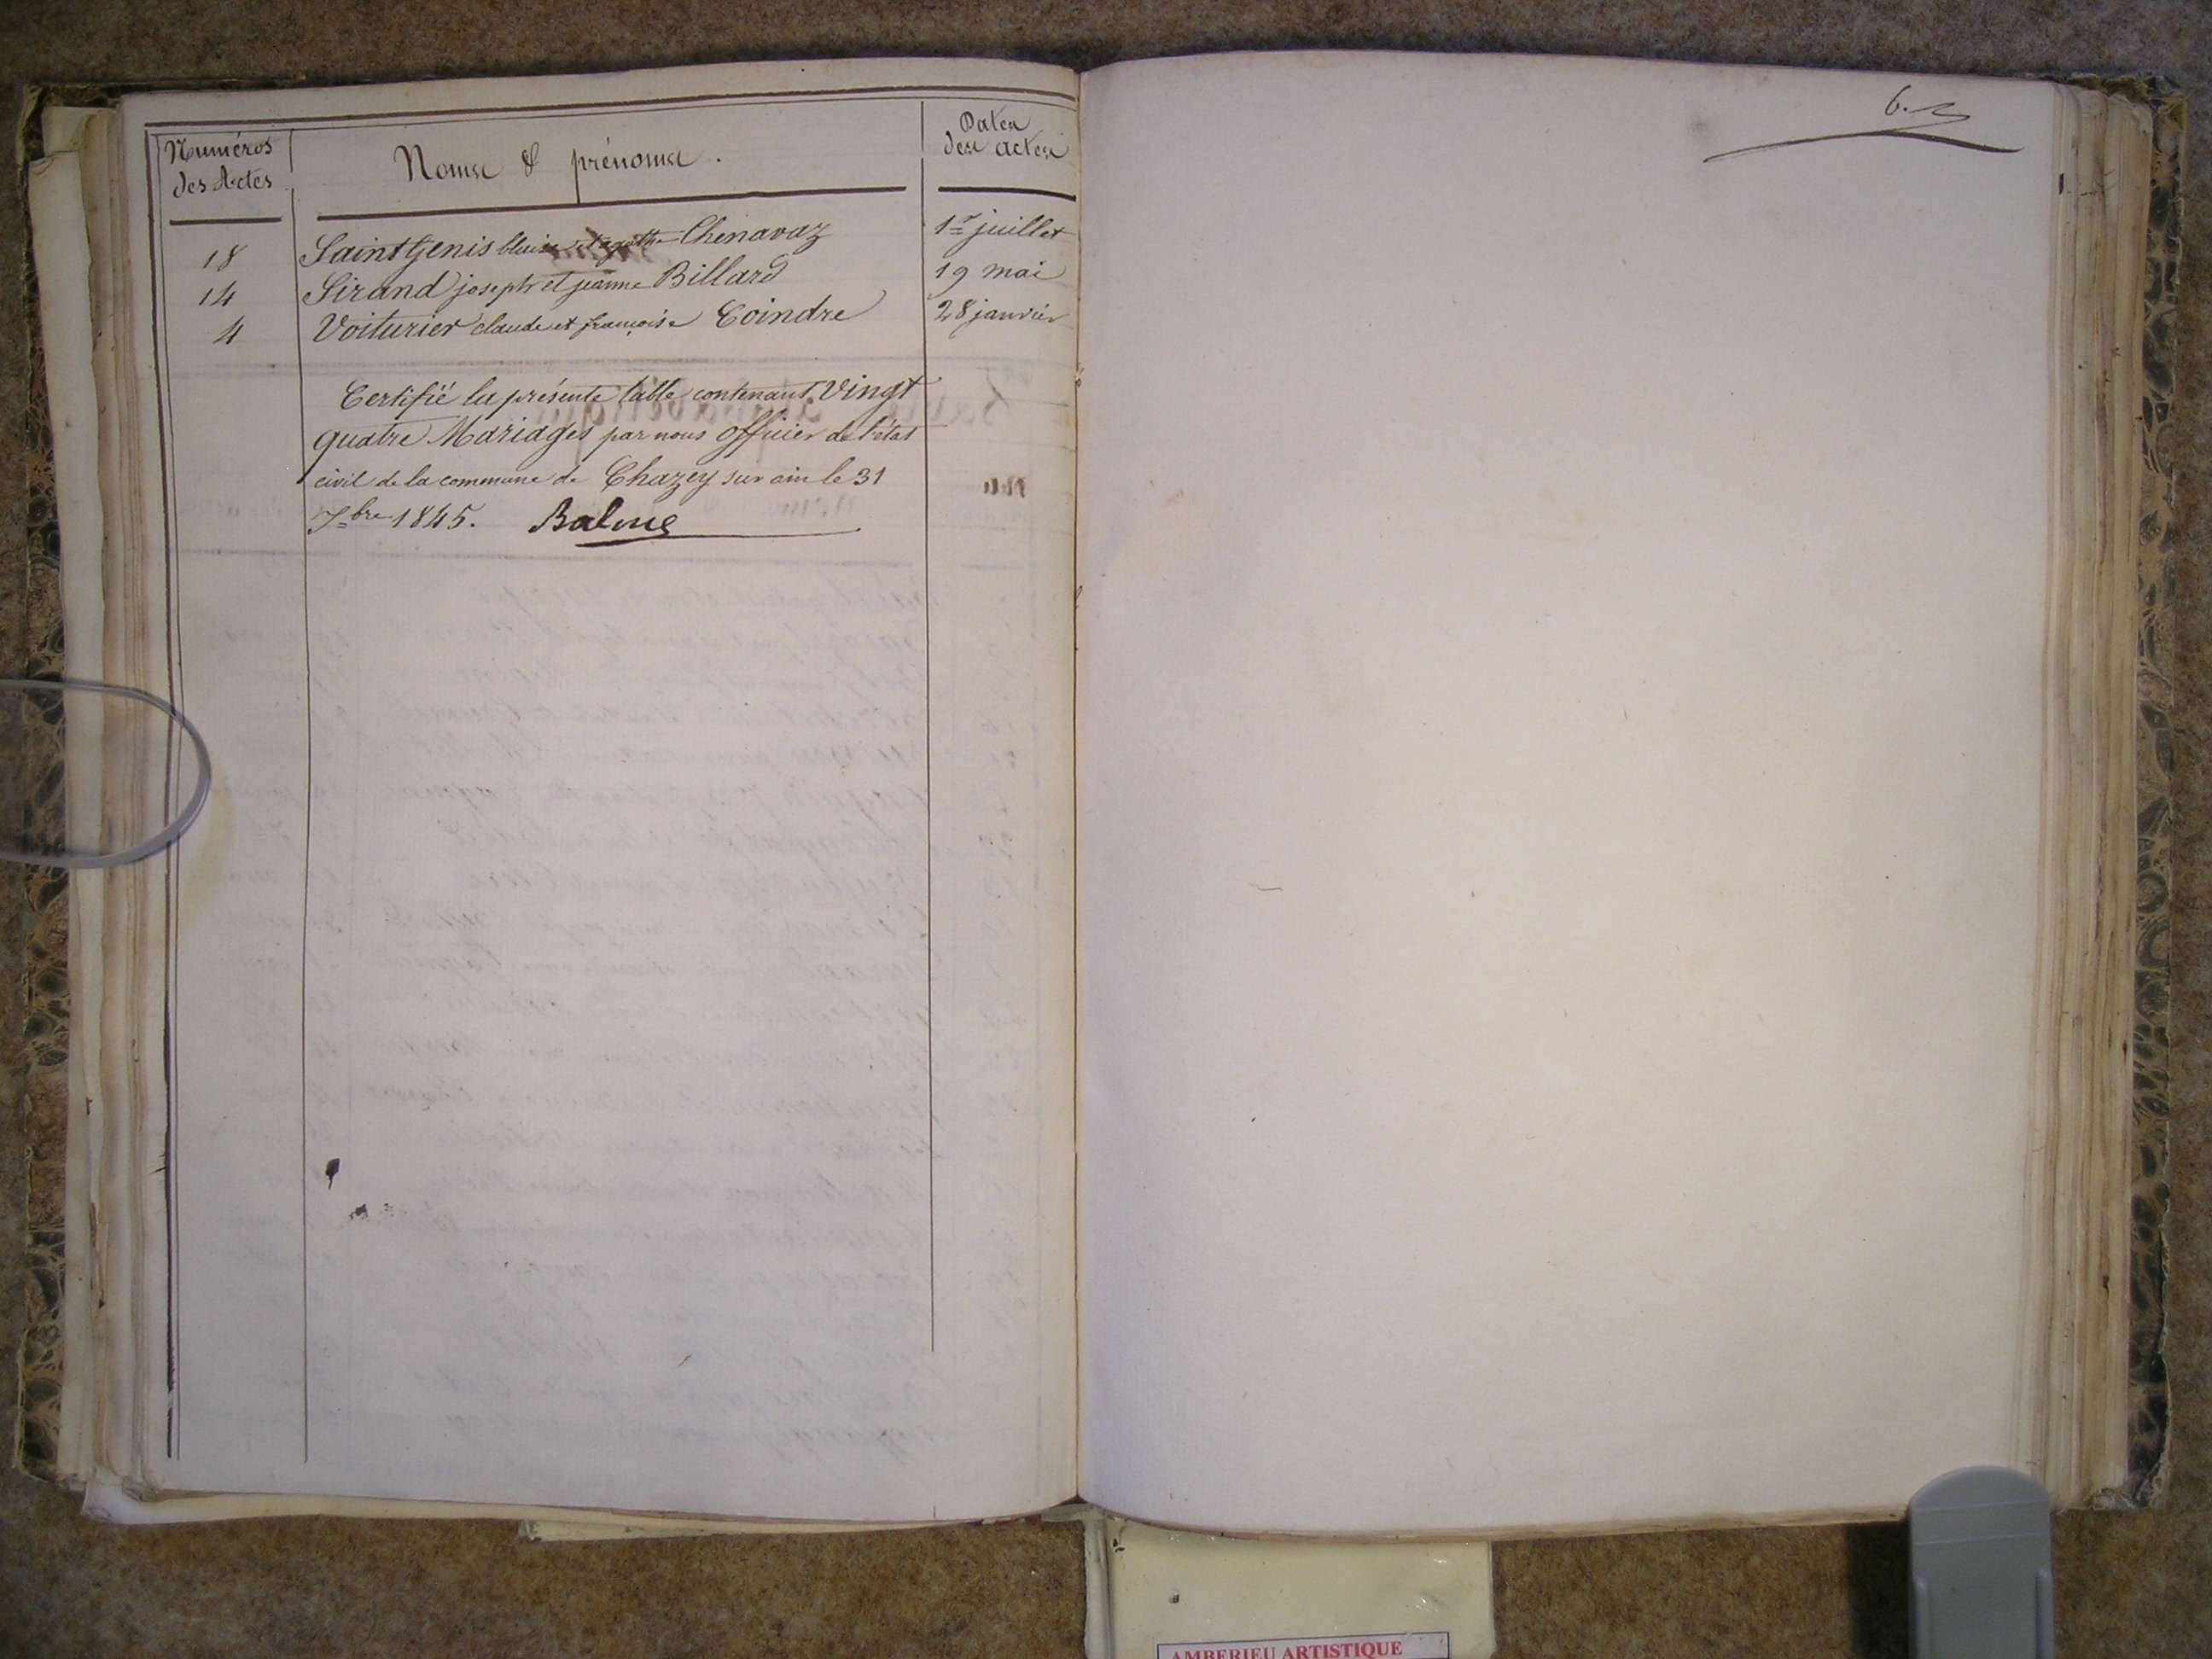 Numéros des Actes | Noms & prénoms. | Dates des actes
18 | Saintgenis blaise et agathe Chenavaz | 1er juillet
14 | Sirand joseph et jeanne Billard | 19 mai
4 | Voiturier claude et françoise Coindre | 28 janvier
Certifié la présente table contenant Vingt
quatre Mariages par nous officier de l'état
civil de la commune de Chazey sur ain le 31
Xbre 1845. Balme
6.
AMBERIEU ARTISTIQUE